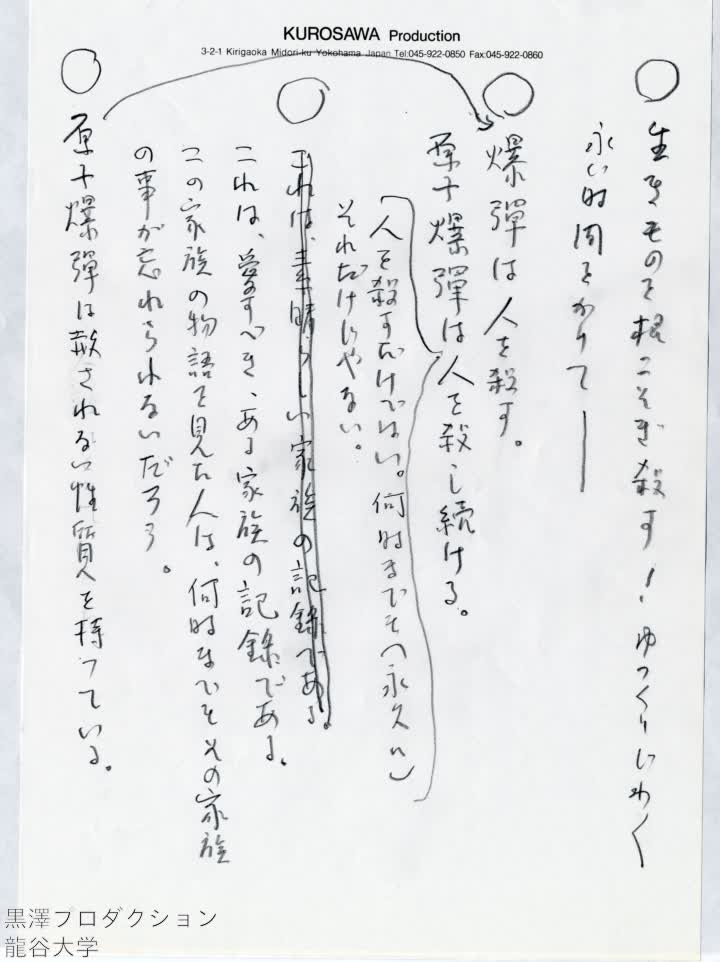 KUROSAWA Production
3-2-1 Kirigaoka Midori-ku Yokohama Japan Tel:045-922-0850 Fax:045-922-0860
○ 生きものを根こそぎ殺す!ゆっくりじわ〱
永い時間をかけて―
○ 爆彈は人を殺す。
原子爆彈は人を殺し続ける。
(人を殺すだけではない。何時までも〈永久に〉
それだけじやない。
○ これは、素晴らしい家族の記録である。
これは、愛すべき、ある家族の記録である。
この家族の物語を見た人は、何時までもその家族
の事が忘れられないだろう。
○ 原子爆彈は赦されない性質を持っている。
黒澤プロダクション
龍谷大学